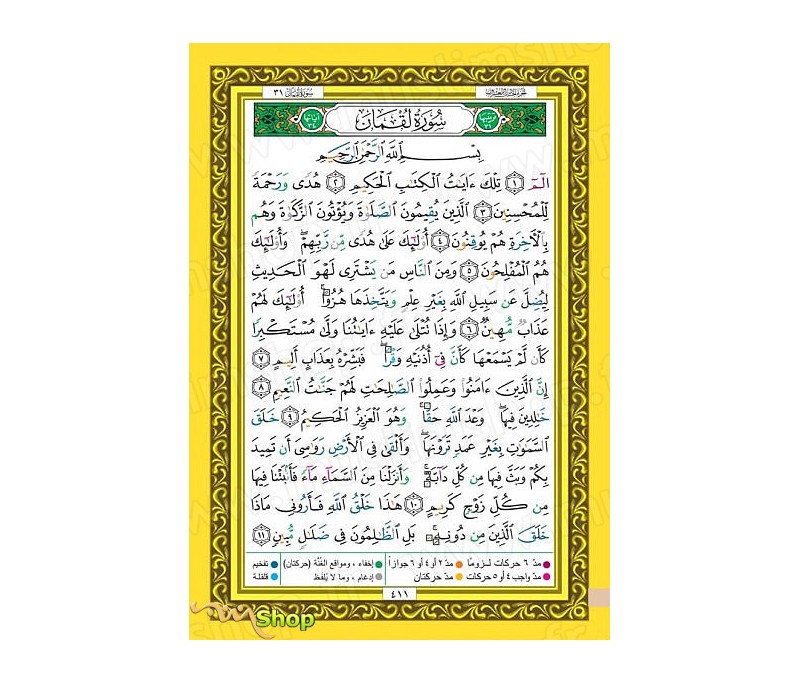 سُورَةُ لُقْمَان ٣١
سُورَةُ لُقْمَانَ
بِسْمِ اللَّهِ الرَّحْمَٰنِ الرَّحِيمِ
الٓمٓ ١ تِلْكَ ءَايَٰتُ الْكِتَٰبِ الْحَكِيمِ ٢ هُدًى وَرَحْمَةً
لِّلْمُحْسِنِينَ ٣ الَّذِينَ يُقِيمُونَ الصَّلَوٰةَ وَيُؤْتُونَ الزَّكَوٰةَ وَهُم
بِالْءَاخِرَةِ هُمْ يُوقِنُونَ ٤ أُو۟لَٰٓئِكَ عَلَىٰ هُدًى مِّن رَّبِّهِمْ ۖ وَأُو۟لَٰٓئِكَ
هُمُ الْمُفْلِحُونَ ٥ وَمِنَ النَّاسِ مَن يَشْتَرِى لَهْوَ الْحَدِيثِ
لِيُضِلَّ عَن سَبِيلِ اللَّهِ بِغَيْرِ عِلْمٍ وَيَتَّخِذَهَا هُزُوًا ۚ أُو۟لَٰٓئِكَ لَهُمْ
عَذَابٌ مُّهِينٌ ٦ وَإِذَا تُتْلَىٰ عَلَيْهِ ءَايَٰتُنَا وَلَّىٰ مُسْتَكْبِرًا
كَأَن لَّمْ يَسْمَعْهَا كَأَنَّ فِىٓ أُذُنَيْهِ وَقْرًا ۖ فَبَشِّرْهُ بِعَذَابٍ أَلِيمٍ ٧
إِنَّ الَّذِينَ ءَامَنُوا۟ وَعَمِلُوا۟ الصَّٰلِحَٰتِ لَهُمْ جَنَّٰتُ النَّعِيمِ ٨
خَٰلِدِينَ فِيهَا ۖ وَعْدَ اللَّهِ حَقًّا ۚ وَهُوَ الْعَزِيزُ الْحَكِيمُ ٩ خَلَقَ
السَّمَٰوَٰتِ بِغَيْرِ عَمَدٍ تَرَوْنَهَا ۖ وَأَلْقَىٰ فِى الْأَرْضِ رَوَٰسِىَ أَن تَمِيدَ
بِكُمْ وَبَثَّ فِيهَا مِن كُلِّ دَآبَّةٍ ۚ وَأَنزَلْنَا مِنَ السَّمَآءِ مَآءً فَأَنۢبَتْنَا فِيهَا
مِن كُلِّ زَوْجٍ كَرِيمٍ ١٠ هَٰذَا خَلْقُ اللَّهِ فَأَرُونِى مَاذَا
خَلَقَ الَّذِينَ مِن دُونِهِۦ ۚ بَلِ الظَّٰلِمُونَ فِى ضَلَٰلٍ مُّبِينٍ ١١
مدّ ٦ حركات لـزومًا مدّ ٢ أو ٤ أو ٦ جوازاً إخفاء ، ومواقع الغُنَّة (حركتان) تفخيم
مدّ واجب ٤ أو ٥ حركات مدّ حركتان إدغام ، وما لا يُلفَظ قلقلة
٤١١
Shop